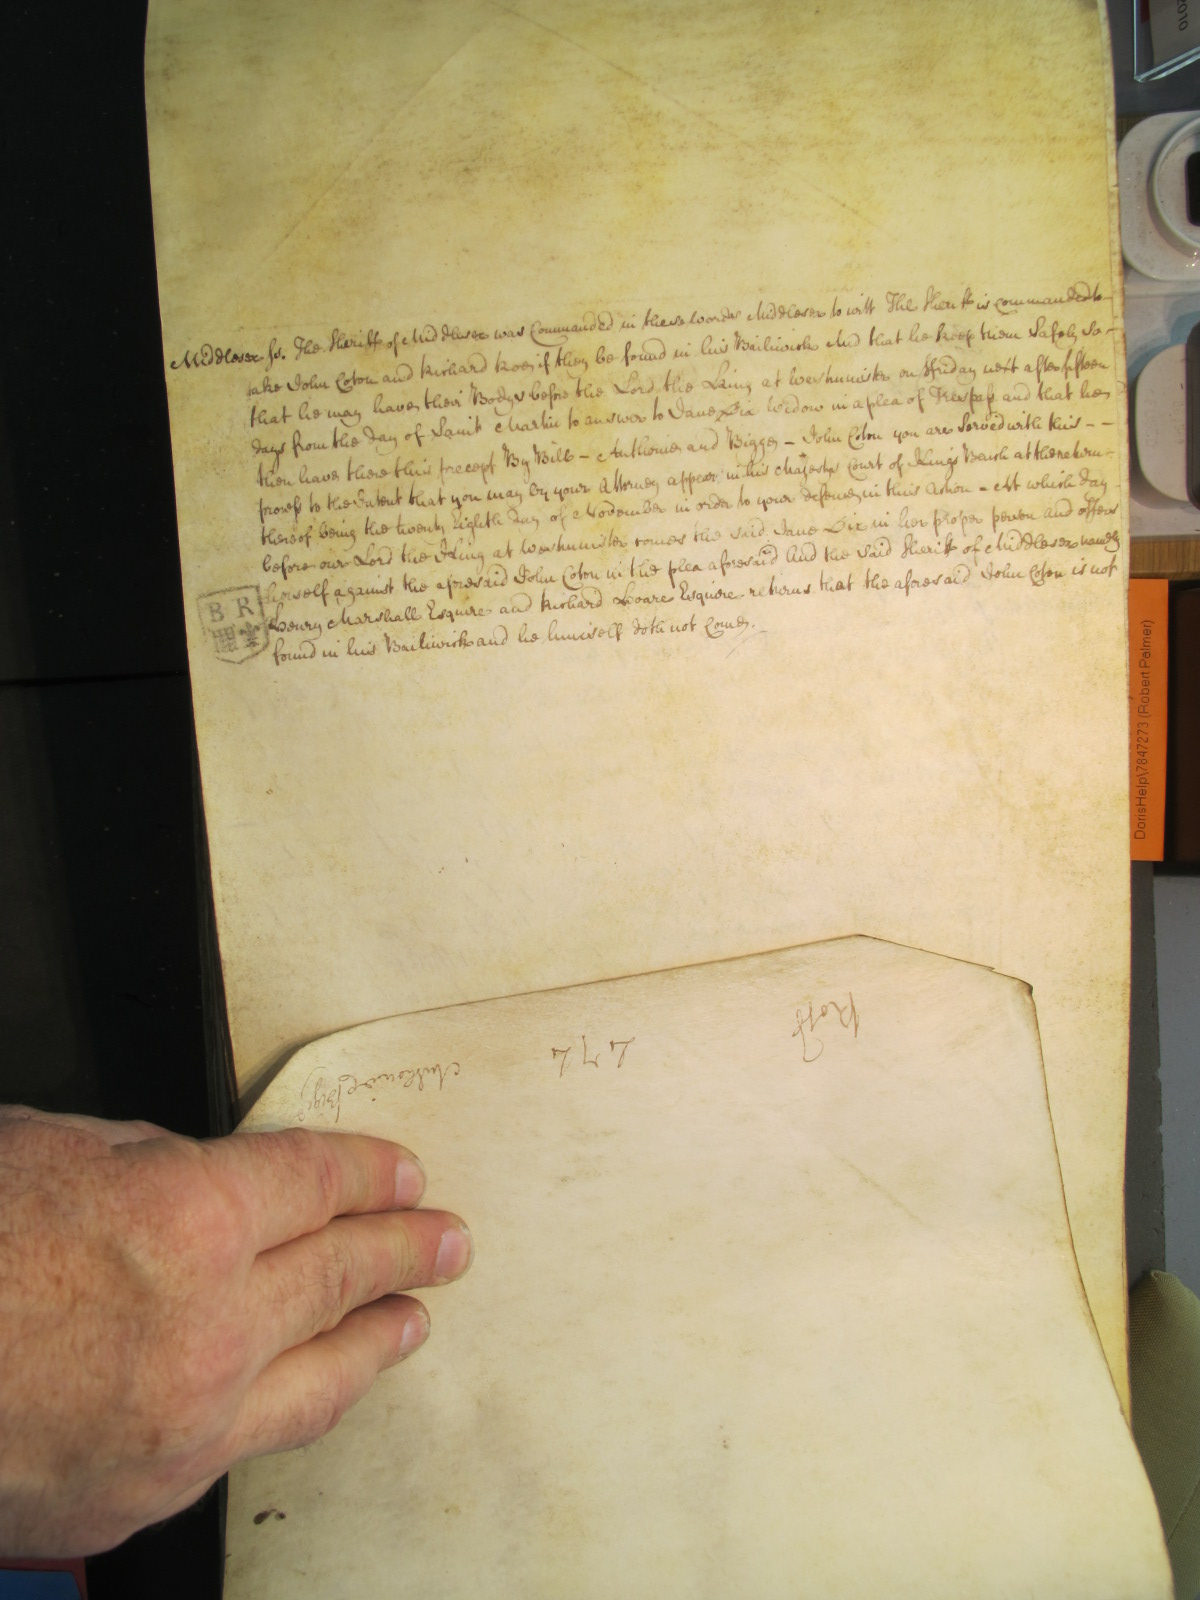 Middlesex ss. The Sheriff of Middlesex was Commanded in these words Middlesex to witt The Sheriff is Commanded to
take John Coton and Richard Roe if they be found in his Bailiwick And that he keep them Safely So
that he may have their Bodys before the Lord the King at Westminster on Friday next after fifteen
days from the day of Saint Martin to answer to Jane Dix Widow in a plea of Trespass and that he
then have there this precept By Bill - Anthonie and Bigge - John Coton you are Served with this - -
process to the Intent that you may by your Attorney appear in his Majestys Court of Kings Bench at the return
thereof being the twenty Eighth day of November in order to your defence in this Action - At which day
before our Lord the King at Westminster comes the said Jane Dix in her proper person and offers
herself against the aforesaid John Coton in the plea aforesaid And the said Sheriff of Middlesex namely
Henry Marshall Esquire and Richard Hoare Esquire returns that the aforesaid John Coton is not
found in his Bailiwick and he himself doth not Come.
B R
Roll
Anthonie & Bigge
DorisHelp\7847273 (Robert Palmer)
2010